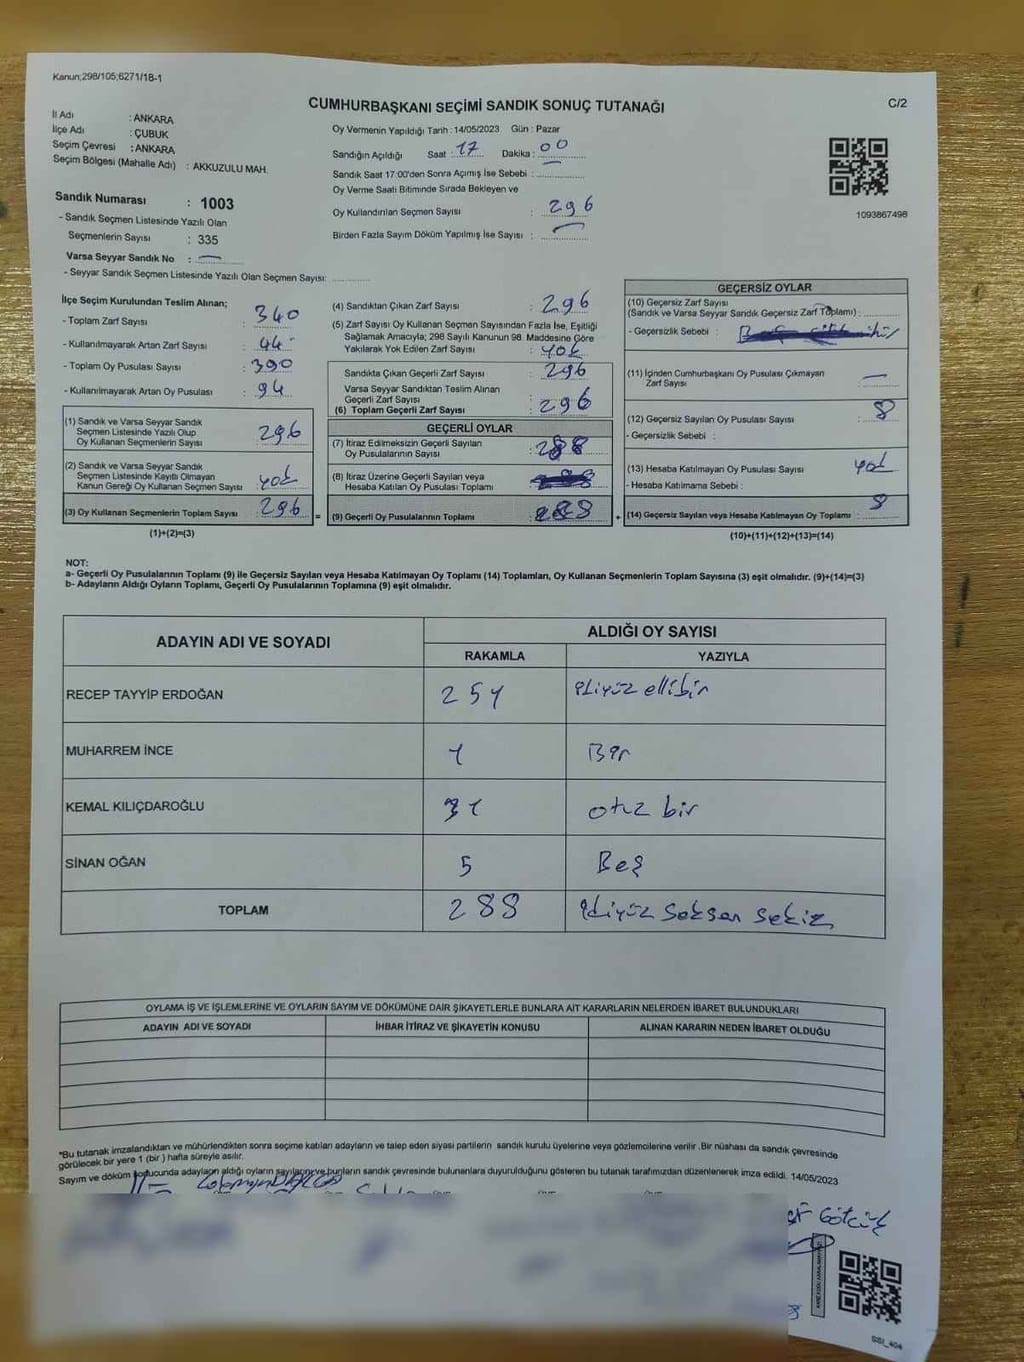 Kanun;298/105;6271/18-1
CUMHURBAŞKANI SEÇİMİ SANDIK SONUÇ TUTANAĞI
C/2
İl Adı : ANKARA
İlçe Adı : ÇUBUK
Seçim Çevresi : ANKARA
Seçim Bölgesi (Mahalle Adı) : AKKUZULU MAH.
Sandık Numarası : 1003
- Sandık Seçmen Listesinde Yazılı Olan
Seçmenlerin Sayısı : 335
Varsa Seyyar Sandık No : —
- Seyyar Sandık Seçmen Listesinde Yazılı Olan Seçmen Sayısı: ..........
Oy Vermenin Yapıldığı Tarih : 14/05/2023 Gün : Pazar
Sandığın Açıldığı Saat : 17 Dakika : 00
Sandık Saat 17:00'den Sonra Açımış İse Sebebi : —
Oy Verme Saati Bitiminde Sırada Bekleyen ve
Oy Kullandırılan Seçmen Sayısı : 296
Birden Fazla Sayım Döküm Yapılmış İse Sayısı : —
1093867498
İlçe Seçim Kurulundan Teslim Alınan;
- Toplam Zarf Sayısı : 340
- Kullanılmayarak Artan Zarf Sayısı : 44
- Toplam Oy Pusulası Sayısı : 390
- Kullanılmayarak Artan Oy Pusulası : 94
(1) Sandık ve Varsa Seyyar Sandık
Seçmen Listesinde Yazılı Olup
Oy Kullanan Seçmenlerin Sayısı : 296
(2) Sandık ve Varsa Seyyar Sandık
Seçmen Listesinde Kayıtlı Olmayan
Kanun Gereği Oy Kullanan Seçmen Sayısı : yok
(3) Oy Kullanan Seçmenlerin Toplam Sayısı : 296
(1)+(2)=(3)
(4) Sandıktan Çıkan Zarf Sayısı : 296
(5) Zarf Sayısı Oy Kullanan Seçmen Sayısından Fazla İse, Eşitliği
Sağlamak Amacıyla; 298 Sayılı Kanunun 98. Maddesine Göre
Yakılarak Yok Edilen Zarf Sayısı : yok
Sandıkta Çıkan Geçerli Zarf Sayısı : 296
Varsa Seyyar Sandıktan Teslim Alınan
Geçerli Zarf Sayısı
(6) Toplam Geçerli Zarf Sayısı : 296
GEÇERLİ OYLAR
(7) İtiraz Edilmeksizin Geçerli Sayılan
Oy Pusulalarının Sayısı : 288
(8) İtiraz Üzerine Geçerli Sayılan veya
Hesaba Katılan Oy Pusulası Toplamı :
= (9) Geçerli Oy Pusulalarının Toplamı : 288
GEÇERSİZ OYLAR
(10) Geçersiz Zarf Sayısı
(Sandık ve Varsa Seyyar Sandık Geçersiz Zarf Toplamı) : ..........
- Geçersizlik Sebebi :
(11) İçinden Cumhurbaşkanı Oy Pusulası Çıkmayan
Zarf Sayısı : —
(12) Geçersiz Sayılan Oy Pusulası Sayısı : 8
- Geçersizlik Sebebi :
(13) Hesaba Katılmayan Oy Pusulası Sayısı : yok
- Hesaba Katılmama Sebebi :
+ (14) Geçersiz Sayılan veya Hesaba Katılmayan Oy Toplamı : 8
(10)+(11)+(12)+(13)=(14)
NOT:
a- Geçerli Oy Pusulalarının Toplamı (9) ile Geçersiz Sayılan veya Hesaba Katılmayan Oy Toplamı (14) Toplamları, Oy Kullanan Seçmenlerin Toplam Sayısına (3) eşit olmalıdır. (9)+(14)=(3)
b- Adayların Aldığı Oyların Toplamı, Geçerli Oy Pusulalarının Toplamına (9) eşit olmalıdır.
ADAYIN ADI VE SOYADI ALDIĞI OY SAYISI
RAKAMLA YAZIYLA
RECEP TAYYİP ERDOĞAN 251 ikiyüz ellibir
MUHARREM İNCE 1 Bir
KEMAL KILIÇDAROĞLU 31 otuz bir
SİNAN OĞAN 5 Beş
TOPLAM 288 ikiyüz seksen sekiz
OYLAMA İŞ VE İŞLEMLERİNE VE OYLARIN SAYIM VE DÖKÜMÜNE DAİR ŞİKAYETLERLE BUNLARA AİT KARARLARIN NELERDEN İBARET BULUNDUKLARI
ADAYIN ADI VE SOYADI İHBAR İTİRAZ VE ŞİKAYETİN KONUSU ALINAN KARARIN NEDEN İBARET OLDUĞU
*Bu tutanak imzalandıktan ve mühürlendikten sonra seçime katılan adayların ve talep eden siyasi partilerin sandık kurulu üyelerine veya gözlemcilerine verilir .Bir nüshası da sandık çevresinde
görülecek bir yere 1 (bir ) hafta süreyle asılır.
Sayım ve döküm sonucunda adayların aldığı oyların sayılarını ve bunların sandık çevresinde bulunanlara duyurulduğunu gösteren bu tutanak tarafımızdan düzenlenerek imza edildi. 14/05/2023
SSI_404